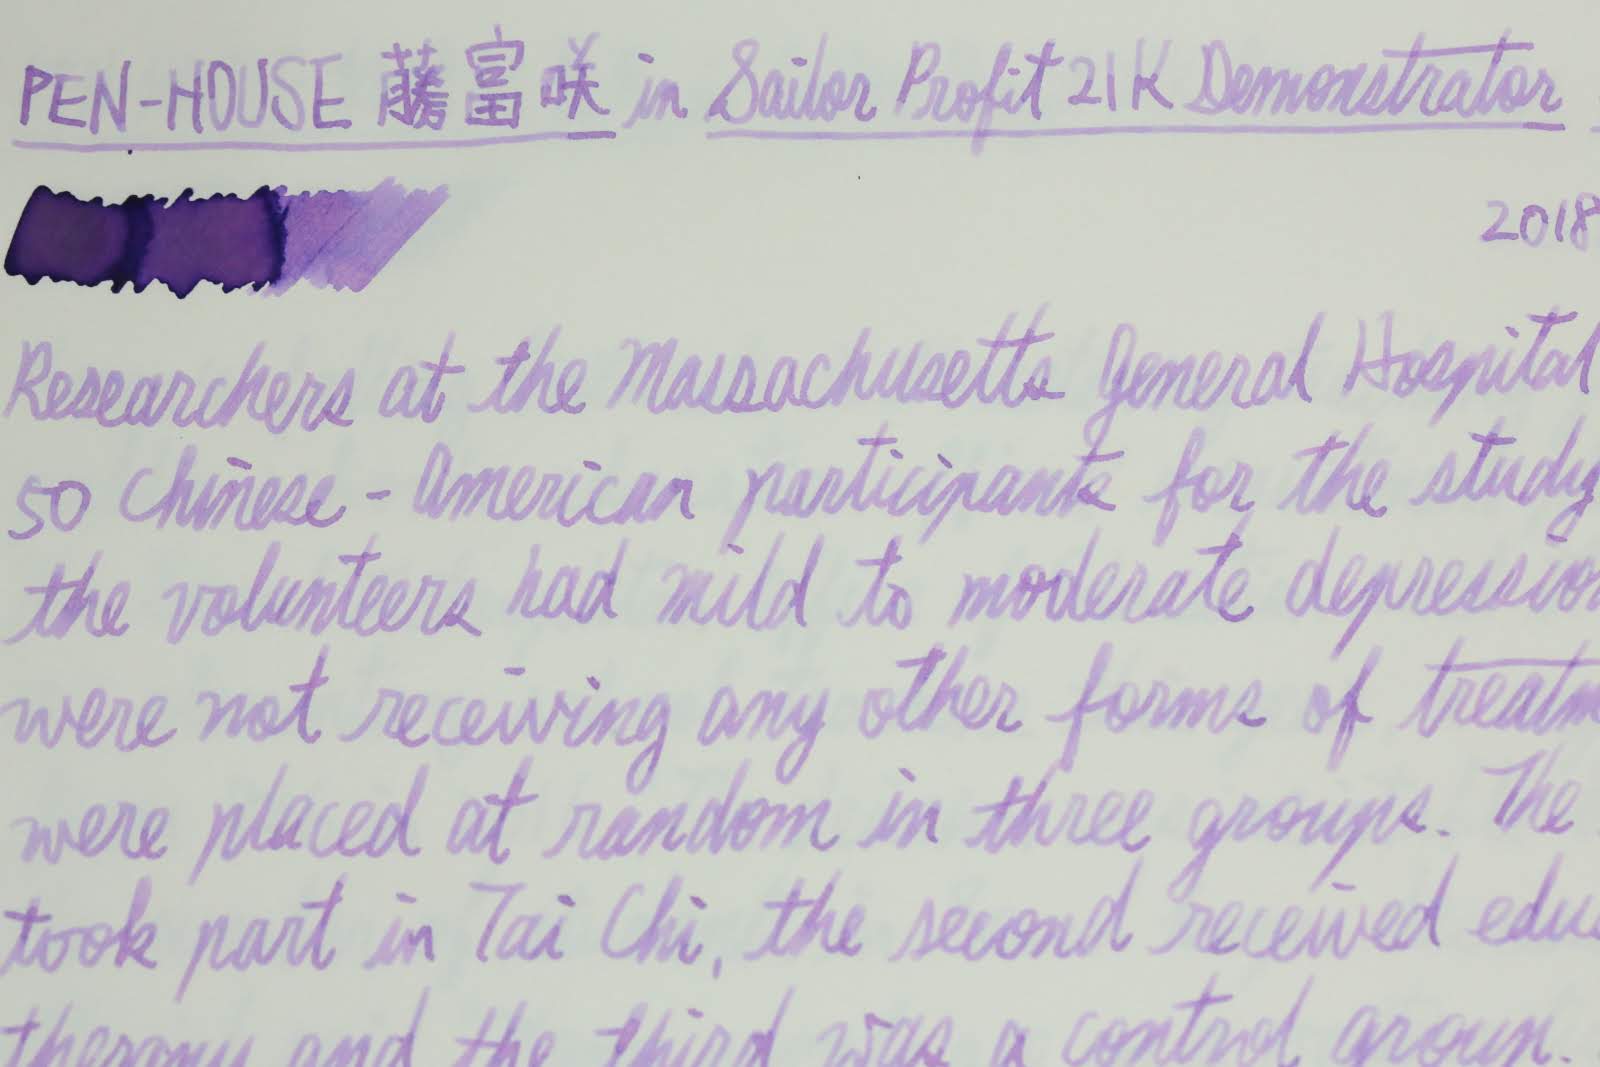 PEN-HOUSE 藤富咲 in Sailor Profit 21K Demonstrator
2018
Researchers at the Massachusetts General Hospital
50 Chinese-American participants for the study
the volunteers had mild to moderate depression
were not receiving any other forms of treatm
were placed at random in three groups. The
took part in Tai Chi, the second received educ
therapy and the third was a control group.